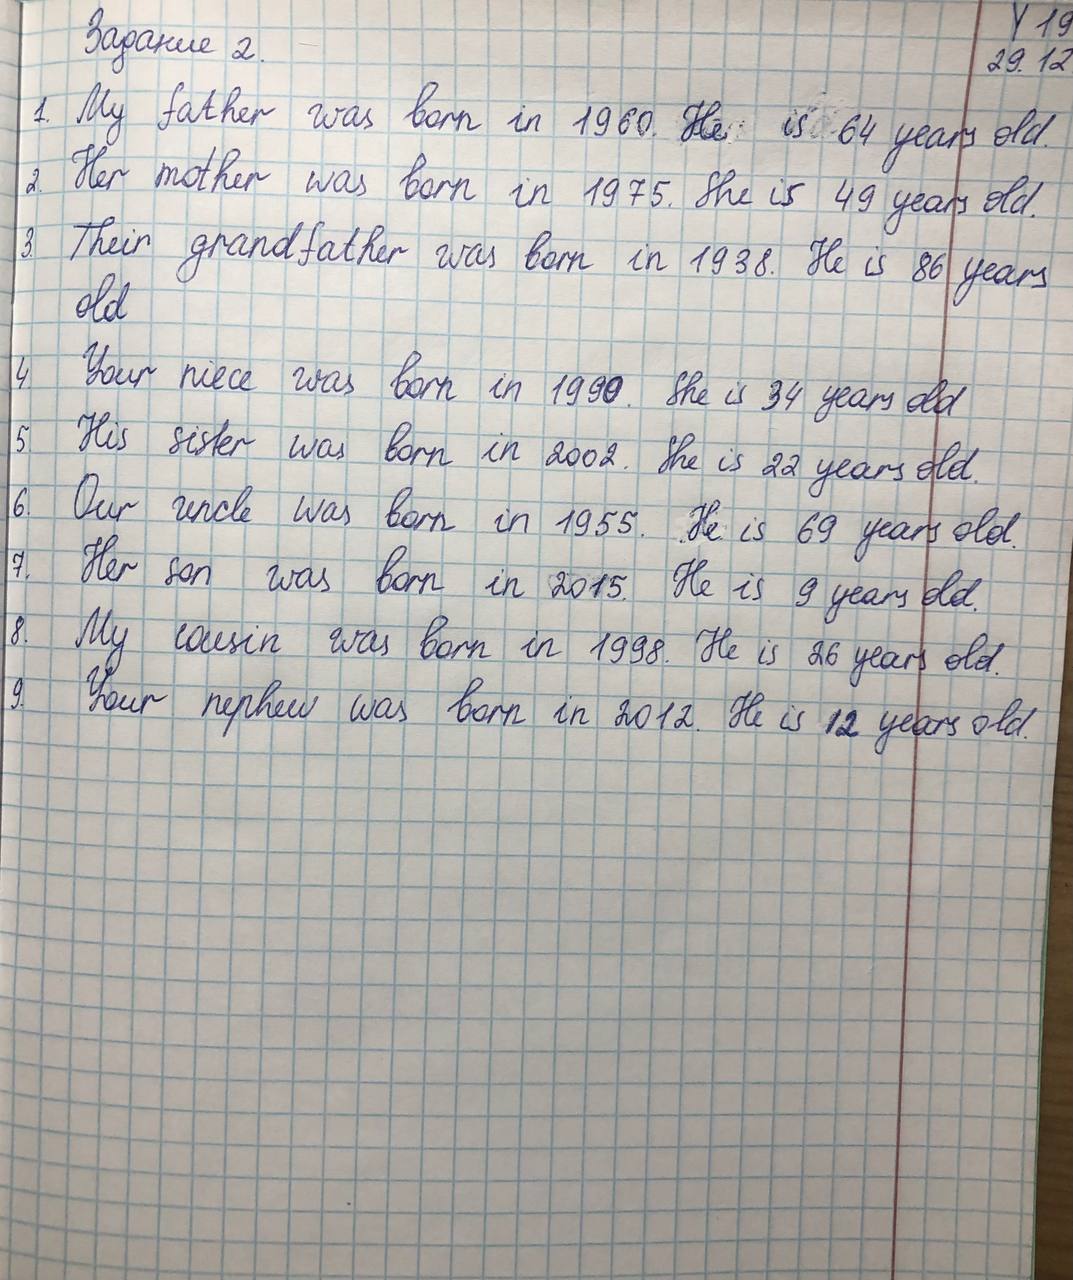 У 19
29.12
Задание 2.
1. My father was born in 1960. He is 64 years old.
2. Her mother was born in 1975. She is 49 years old.
3. Their grandfather was born in 1938. He is 86 years
old
4. Your niece was born in 1990. She is 34 years old
5. His sister was born in 2002. She is 22 years old.
6. Our uncle was born in 1955. He is 69 years old.
7. Her son was born in 2015. He is 9 years old.
8. My cousin was born in 1998. He is 26 years old.
9. Your nephew was born in 2012. He is 12 years old.